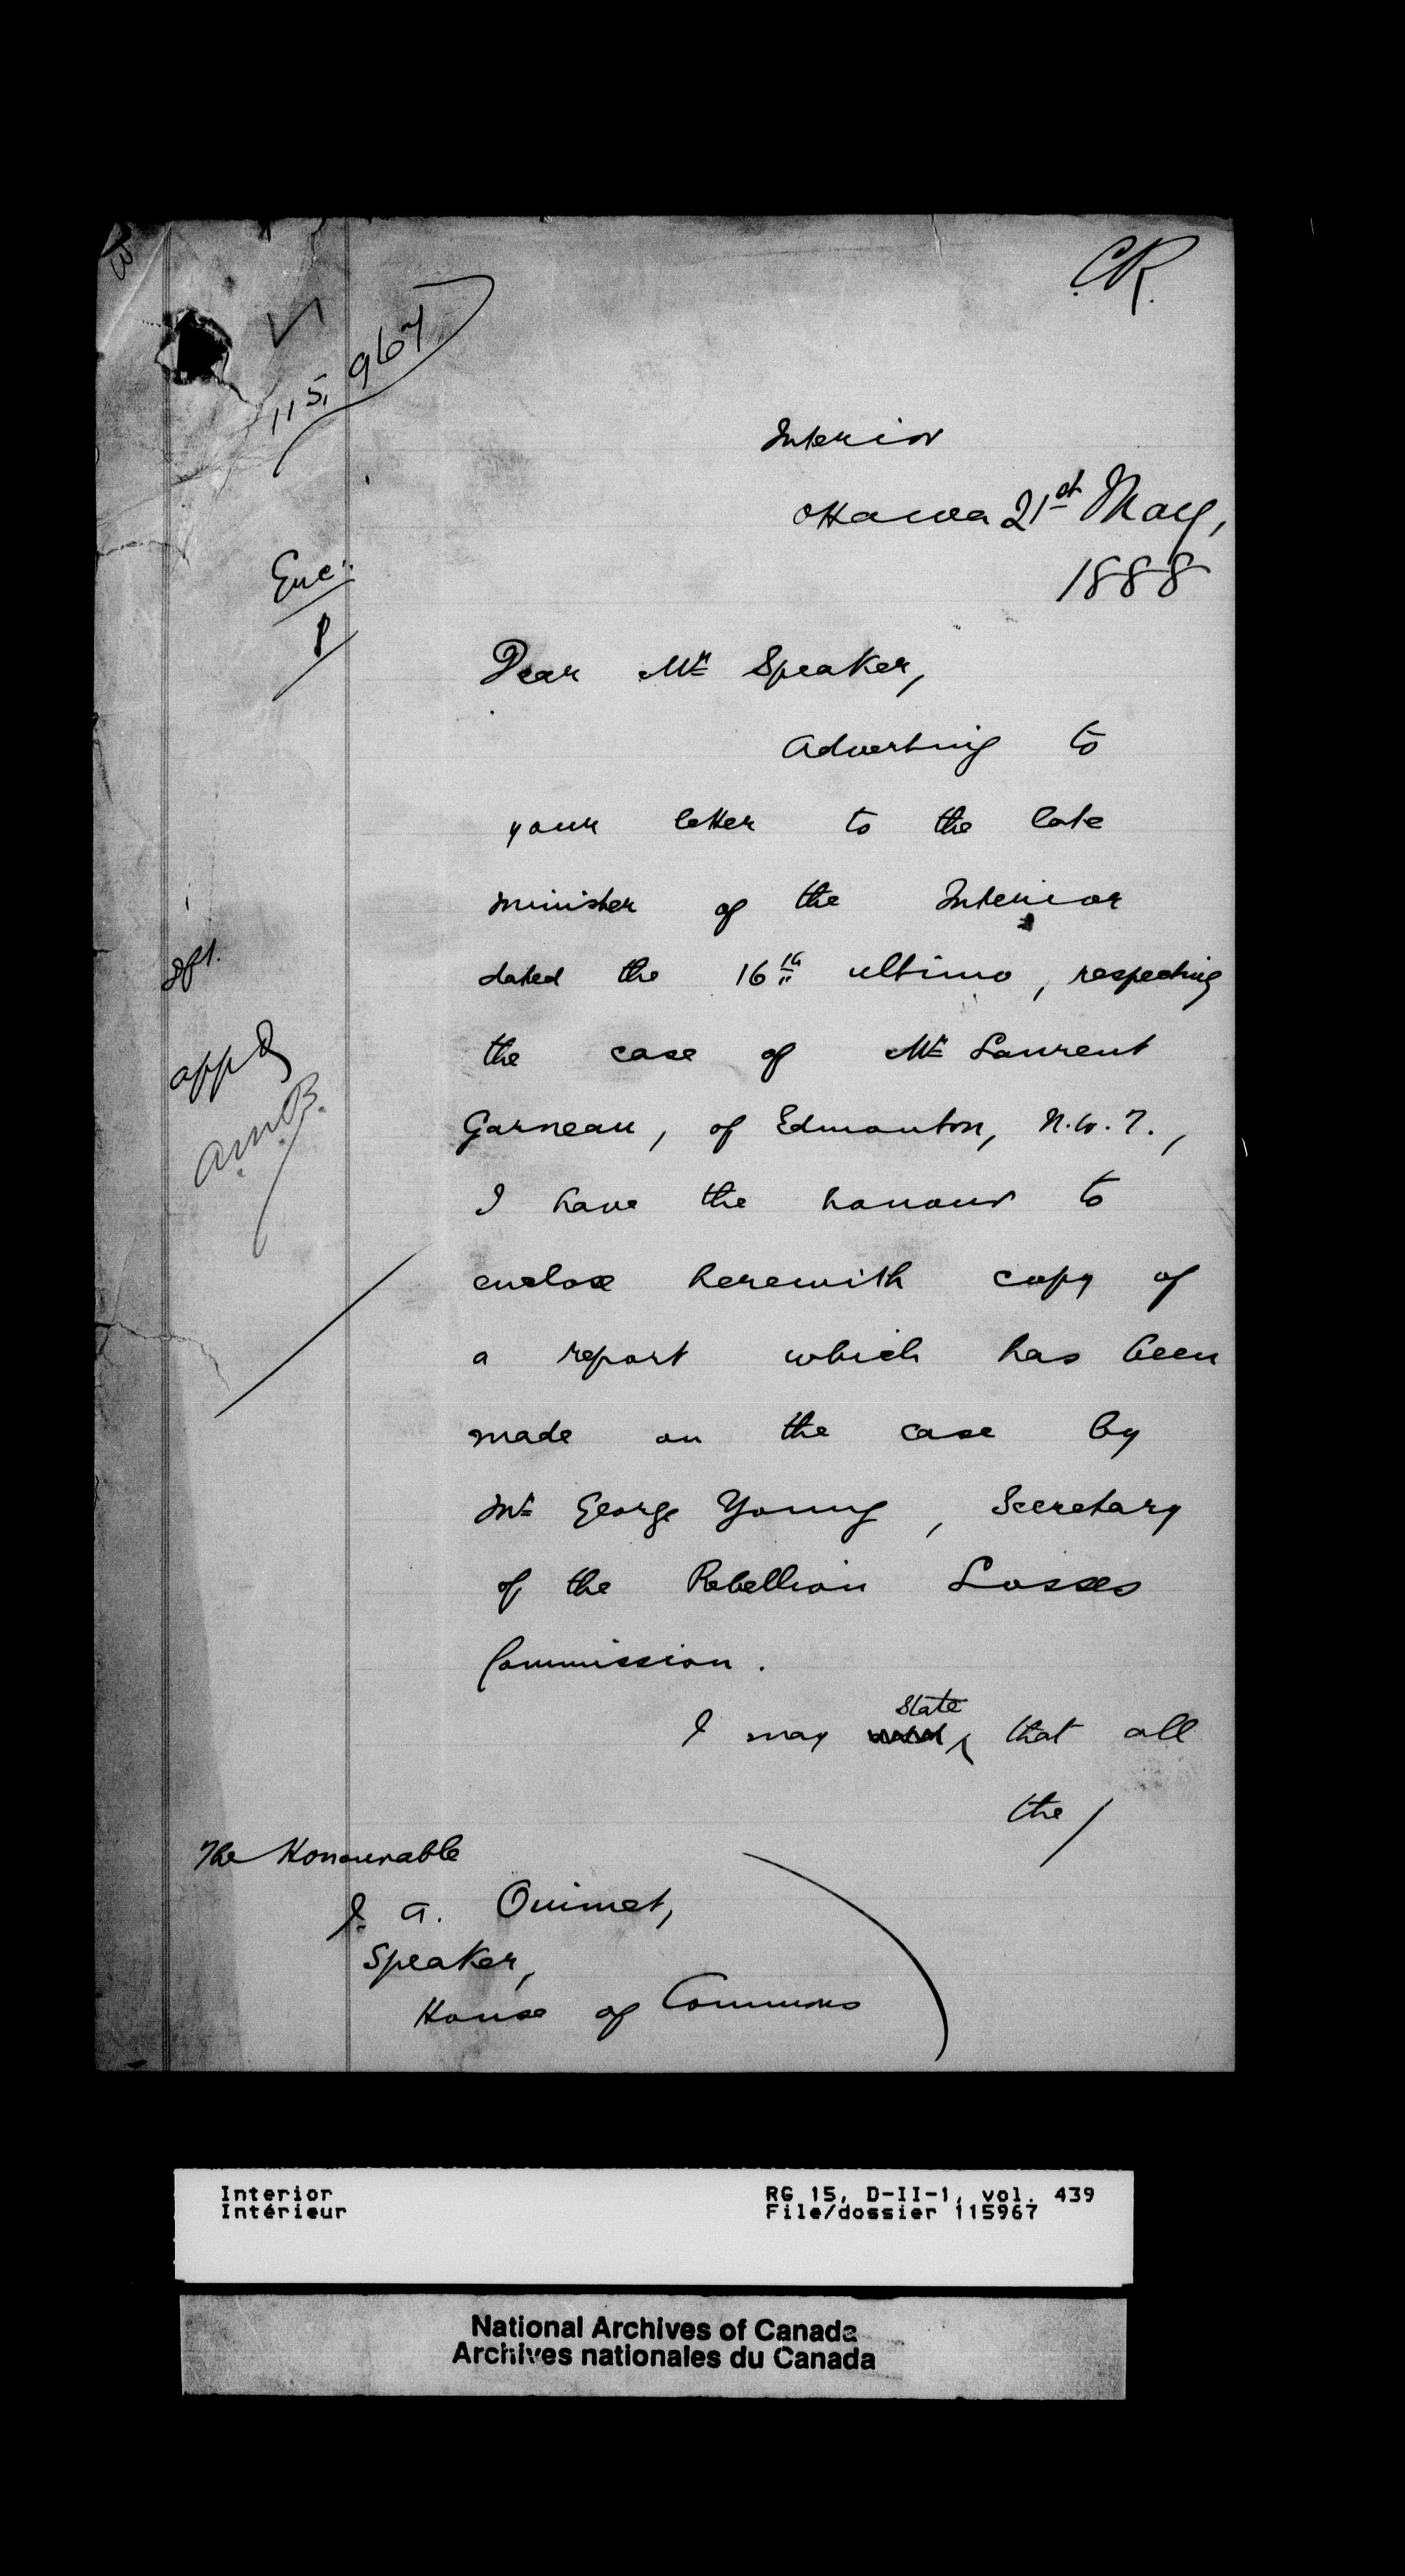 CR.
115,967
Interior
Ottawa 21st May,
1888
Enc:
1
Dear Mr Speaker,
Adverting to
your letter to the late
Minister of the Interior
dated the 16th ultimo, respecting
the case of Mr Laurent
Garneau, of Edmonton, N.W.T.,
I have the honour to
enclose herewith copy of
a report which has been
made on the case by
Mr George Young, Secretary
of the Rebellion Losses
Commission.
I may state that all
the/
appd
A.M.B.
The Honourable
J. A. Ouimet,
Speaker,
House of Commons
Interior
Intérieur
RG 15, D-II-1, vol. 439
File/dossier 115967
National Archives of Canada
Archives nationales du Canada